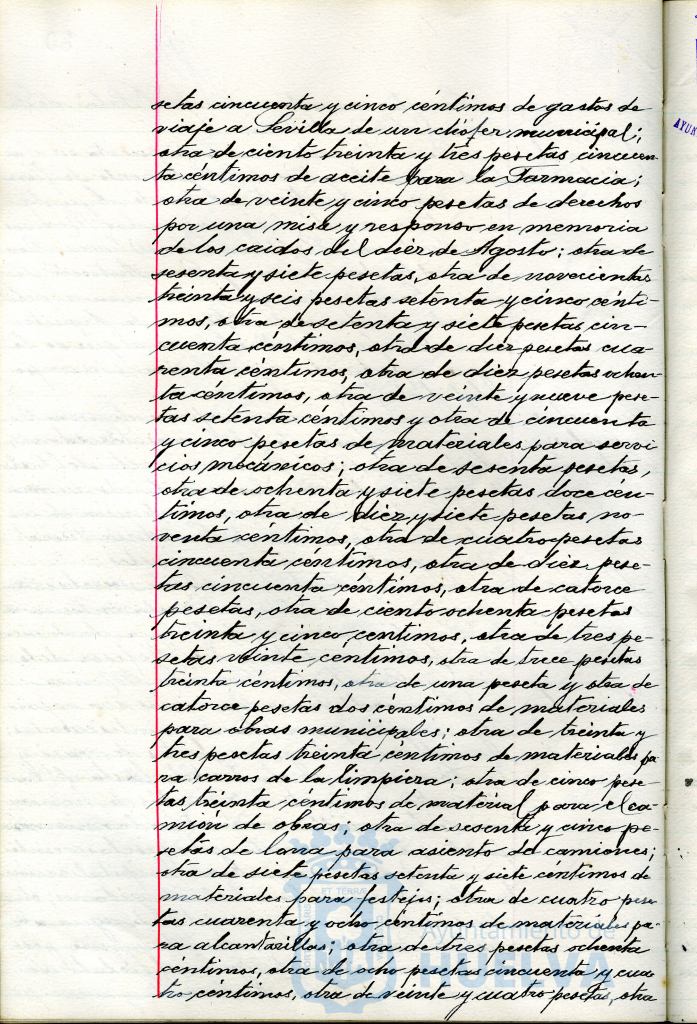 setas cincuenta y cinco céntimos de gastos de
viaje a Sevilla de un chófer municipal;
otra de ciento treinta y tres pesetas cincuen-
ta céntimos de aceite para la Farmacia;
otra de veinte y cinco pesetas de derechos
por una misa y responso en memoria
de los caidos del diez de Agosto; otra de
sesenta y siete pesetas, otra de novecientas
treinta y seis pesetas setenta y cinco cénti-
mos, otra de setenta y siete pesetas cin-
cuenta céntimos, otra de diez pesetas cua-
renta céntimos, otra de diez pesetas ochen-
ta céntimos, otra de veinte y nueve pese-
tas setenta céntimos y otra de cincuenta
y cinco pesetas de materiales para servi-
cios mecánicos; otra de sesenta pesetas,
otra de ochenta y siete pesetas doce cén-
timos, otra de diez y siete pesetas no-
venta céntimos, otra de cuatro pesetas
cincuenta céntimos, otra de diez pese-
tas cincuenta céntimos, otra de catorce
pesetas, otra de ciento ochenta pesetas
treinta y cinco centimos, otra de tres pe-
setas veinte céntimos, otra de trece pesetas
treinta céntimos, otra de una peseta y otra de
catorce pesetas dos céntimos de materiales
para obras municipales; otra de treinta y
tres pesetas treinta céntimos de materiales pa-
ra carros de la limpieza; otra de cinco pese-
tas treinta céntimos de material para el ca-
mión de obras; otra de sesenta y cinco pe-
setas de lona para asiento de camiones;
otra de siete pesetas setenta y siete céntimos de
materiales para festejos; otra de cuatro pese-
tas cuarenta y ocho céntimos de materiales pa-
ra alcantarillas; otra de tres pesetas ochenta
céntimos, otra de ocho pesetas cincuenta y cua-
tro céntimos, otra de veinte y cuatro pesetas, otra
AYUN
ET TERRAE
Ayuntamiento de
HUELVA